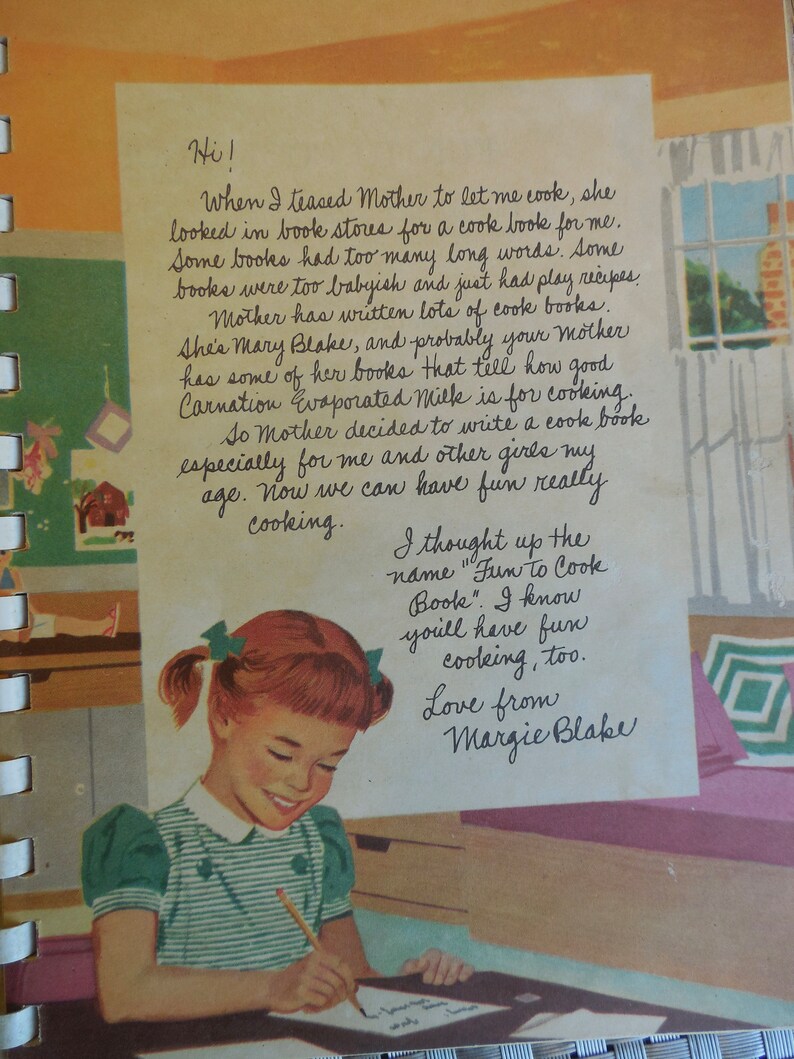 Hi!
When I teased Mother to let me cook, she
looked in book stores for a cook book for me.
Some books had too many long words. Some
books were too babyish and just had play recipes.
Mother has written lots of cook books.
She's Mary Blake, and probably your Mother
has some of her books that tell how good
Carnation Evaporated Milk is for cooking.
So Mother decided to write a cook book
especially for me and other girls my
age. Now we can have fun really
cooking.
I thought up the
name "Fun To Cook
Book". I know
you'll have fun
cooking, too.
Love from
Margie Blake